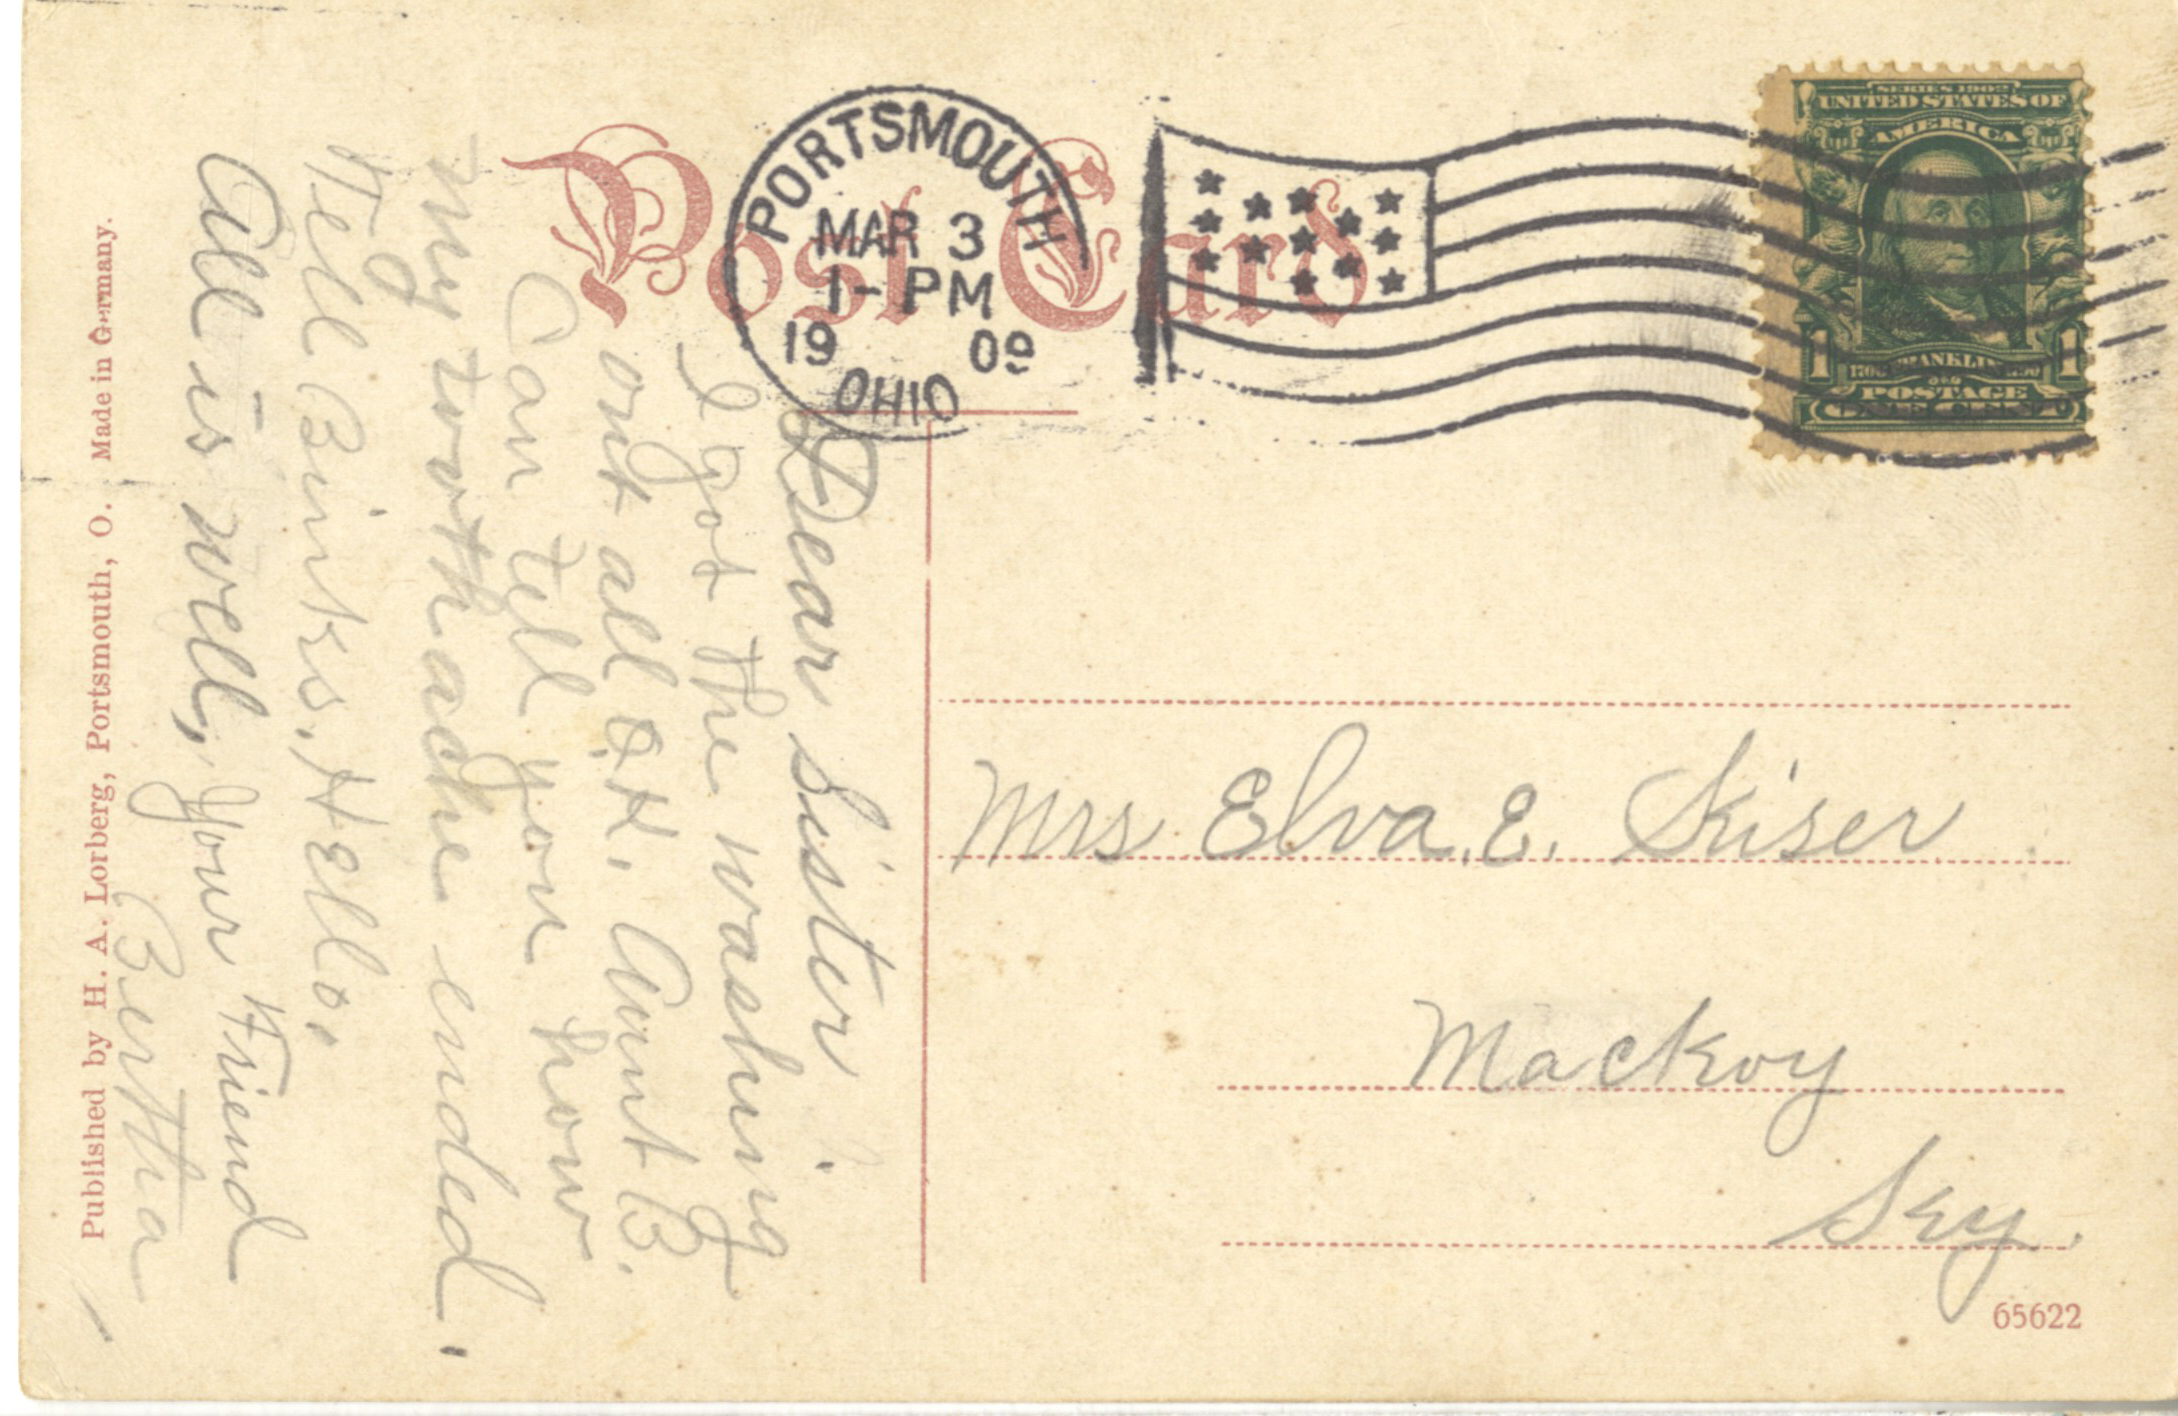 Post Card
PORTSMOUTH
MAR 3
1-PM
1909
OHIO
SERIES 1902
UNITED STATES OF
AMERICA
1 FRANKLIN 1
POSTAGE
ONE CENT
Dear Sister.
I got the washing
out all O.K. Aunt B.
Can tell you how
my toothache ended.
Hello.
All is well, Your Friend
Bertha
Mrs Elva. E. Kiser
Mackoy
Ky.
65622
Published by H. A. Lorberg, Portsmouth, O. Made in Germany.